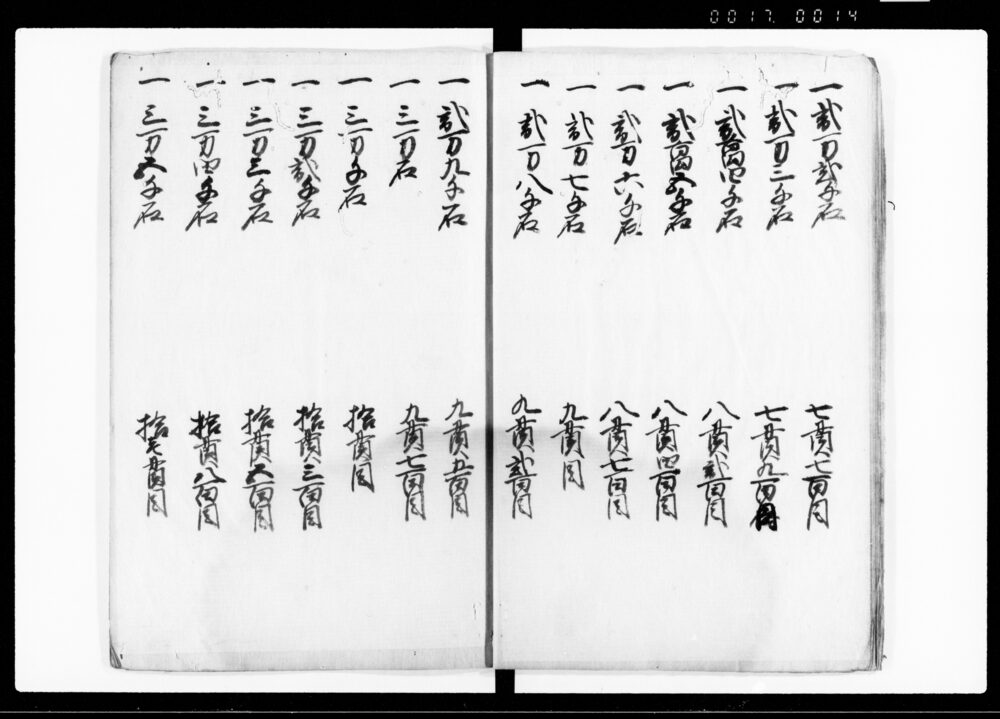 0017 0014
一 弐万弐千石 七貫七百目
一 弐万三千石 七貫九百目
一 弐萬四千石 八貫弐百目
一 弐萬五千石 八貫四百目
一 弐万六千石 八貫七百目
一 弐万七千石 九貫目
一 弐万八千石 九貫弐百目
一 弐万九千石 九貫五百目
一 三万石 九貫七百目
一 三万千石 拾貫目
一 三万弐千石 拾貫三百目
一 三万三千石 拾貫五百目
一 三万四千石 拾貫八百目
一 三万五千石 拾壱貫目